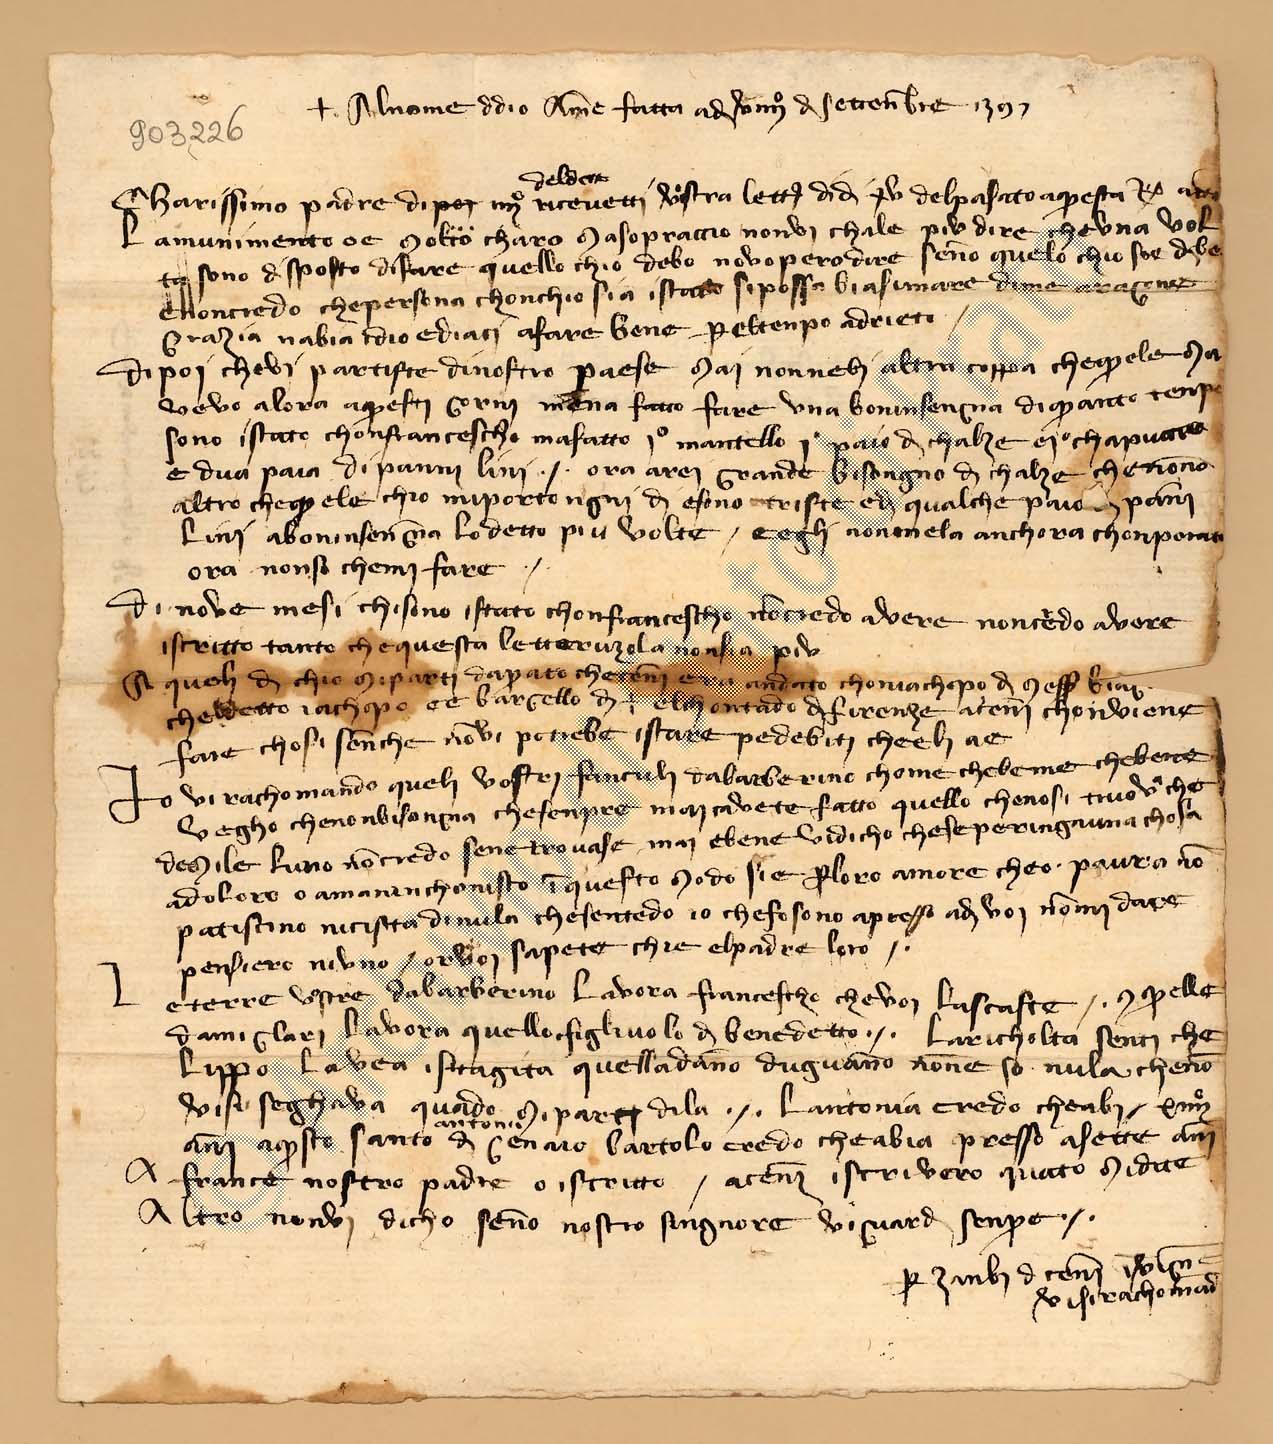 903226
+ Al nome ddio Ame fatta adj VIIIIº dj settenbre 1397
deldetto
Charissimo padre dipoi IIIIº ricevetti vostra lettª didj IV delpasato aqesta Rº
Lamunimento oe molto charo masopraccio nonvi chale piu dire cheuna vol
ta sono disposto difare quello chio debo novoperodire seno quelo chio soe
enoncredo chepersona chonchio sia istato siposa biasimare dime
Grazia nabia idio ediaci afare bene peltenpo adrieto /
Dipoi chevi partiste dinostro paese mai nonnebi altra choppa cheqele ma
uevo alora aqesti gorni mena fatto fare una boninsengna diqanto tenpo
sono istato chonfrancescho mafatto 1º mantello 1º paio dj chalze e 1º chapuccio
e dua paia di panni lini ./. ora arei grande bisongno dj chalze chenono
altro cheqele chio miporto ngni dj esono triste edj qualche paio dj pani
Lini aboninsengna lodetto piu volte / eegli nonmela anchora chonperate
ora nonso chemi fare ./.
Di nove mesi chisono istato chonfrancescho nocredo avere noncredo avere
iscritto tanto chequesta letteruzola nonsia piu
A queli dj chio miparti daprato cheteni era andato chomachopo dj meſſ biax
cheldetto iachopo ee bargello dj elchontado djfirenze ateni chonviene
fare chosi senche novi potrebe istare pedebiti cheeli ae
Io vi rachomando queli vostri fanculi dabarberino chome chebeme chebene
vegho chenonbisongna chesenpre mai navete fatto quello chenosi truovº che
demile luno nocredo sene trovase mai ebene vidicho cheseperingauna chosa
adoloro o amaninchonisto iquesto modo sie ploro amore cheo paura no
patiscino nicista dinula chesentedo io chefosono apresso adj voi nomi dare
pensiero niuno / orvoi sapete chie elpadre loro /.
Leterre vstre dabarberino lavora francescho chevoi lasciaste /. mqelle
damiglari lavora quello figliuolo dj benedetto ./. Laricholta senti che
Lippo lavea istagita quelladano duguano none so nula cheno
visi seghava quado miparti dila ./. Lantonia credo cheabi / XIIIIº
antonio
ani aqsto santo dj Genaio bartolo credo cheabia presso asette ani
A france nostro padre o iscritto / ateni iscrivero quato midite
Altro nonvi dicho seno nostro singnore viguardj senpre ./.
p Zanobi dj teni ivign
vi si rachomad